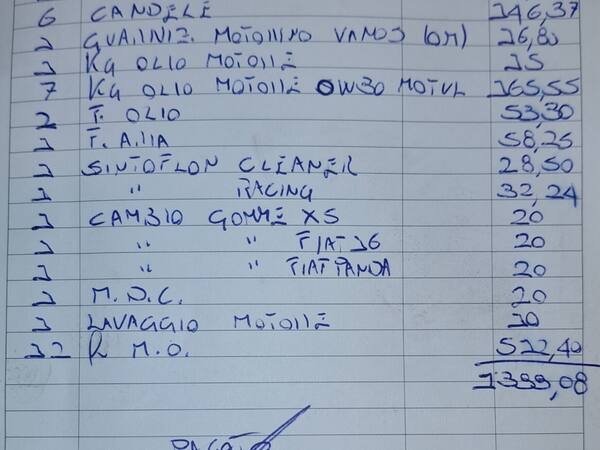 6 CANDELE 146,37
1 GUARNIZ. MOTORINO VANOS (OR) 16,80
1 KG OLIO MOTORE 15
7 KG OLIO MOTORE 0W30 MOTUL 165,55
2 F. OLIO 53,30
1 F. ARIA 58,25
1 SINTOFLON CLEANER 28,50
1 " RACING 32,24
1 CAMBIO GOMME X5 20
1 " " FIAT 16 20
1 " " FIAT PANDA 20
1 M.D.C. 20
1 LAVAGGIO MOTORE 10
12 h M.O. 522,40
1399,08